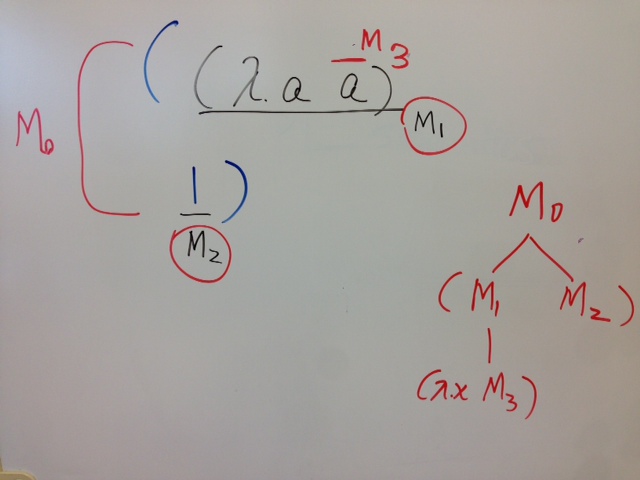 M3
( ( λ.a a )
M1
M0
1 )
M2
M0
( M1 M2 )
(λ.x M3)